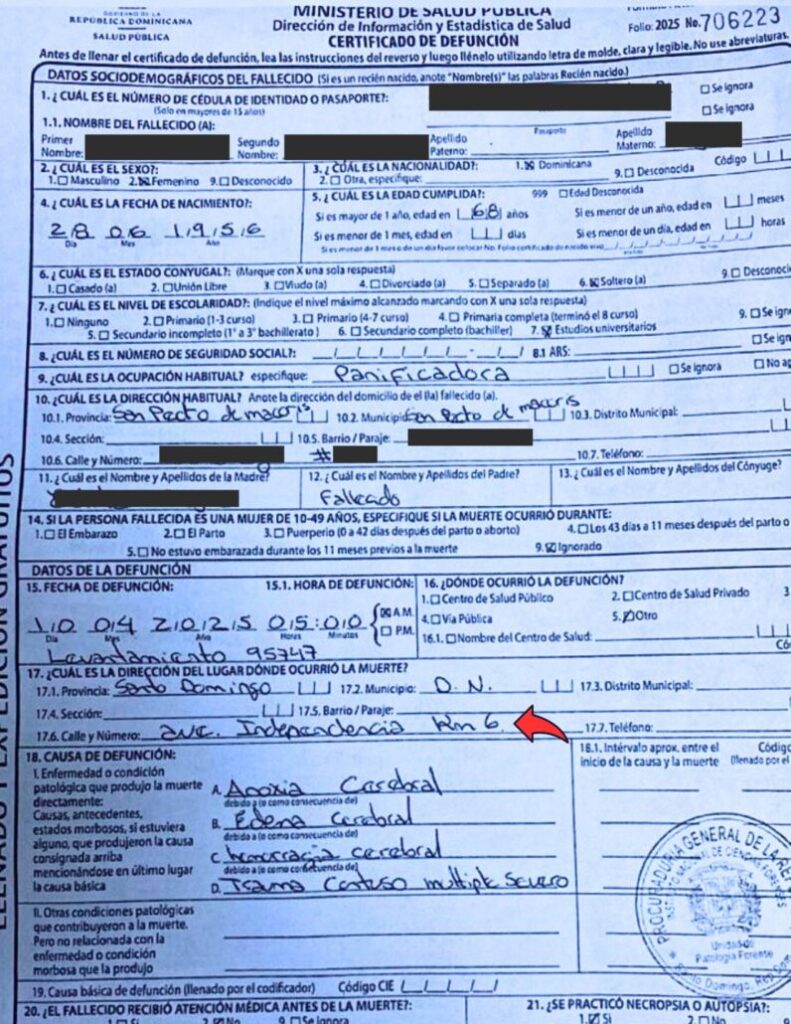 GOBIERNO DE LA
REPÚBLICA DOMINICANA
SALUD PÚBLICA
MINISTERIO DE SALUD PÚBLICA
Dirección de Información y Estadística de Salud
CERTIFICADO DE DEFUNCIÓN
Folio: 2025 No. 706223
Antes de llenar el certificado de defunción, lea las instrucciones del reverso y luego llénelo utilizando letra de molde, clara y legible. No use abreviaturas.
DATOS SOCIODEMOGRÁFICOS DEL FALLECIDO (Si es un recién nacido, anote "Nombre(s)" las palabras Recién nacido.)
1. ¿CUÁL ES EL NÚMERO DE CÉDULA DE IDENTIDAD O PASAPORTE?: Se ignora
(Solo en mayores de 15 años) Se ignora
1.1. NOMBRE DEL FALLECIDO (A): Pasaporte
Primer Nombre: Segundo Nombre: Apellido Paterno: Apellido Materno:
2. ¿CUÁL ES EL SEXO?: 3. ¿CUÁL ES LA NACIONALIDAD?: 1. Dominicana 9. Desconocida Código
1. Masculino 2. Femenino 9. Desconocido 2. Otra, especifique:
4. ¿CUÁL ES LA FECHA DE NACIMIENTO?: 5. ¿CUÁL ES LA EDAD CUMPLIDA?: 999 Edad Desconocida
28 06 1956 Si es mayor de 1 año, edad en 68 años Si es menor de un año, edad en meses
Día Mes Año Si es menor de 1 mes, edad en días Si es menor de un día, edad en horas
6. ¿CUÁL ES EL ESTADO CONYUGAL?: (Marque con X una sola respuesta)
1. Casado (a) 2. Unión Libre 3. Viudo (a) 4. Divorciado (a) 5. Separado (a) 6. Soltero (a) 9. Desconoci
7. ¿CUÁL ES EL NIVEL DE ESCOLARIDAD?: (Indique el nivel máximo alcanzado marcando con X una sola respuesta)
1. Ninguno 2. Primario (1-3 curso) 3. Primario (4-7 curso) 4. Primaria completa (terminó el 8 curso) 9. Se ign
5. Secundario incompleto (1° a 3° bachillerato) 6. Secundario completo (bachiller) 7. Estudios universitarios
8. ¿CUÁL ES EL NÚMERO DE SEGURIDAD SOCIAL?: 8.1 ARS: Se ign
9. ¿CUÁL ES LA OCUPACIÓN HABITUAL? especifique: Panificadora Se ignora No ap
10. ¿CUÁL ES LA DIRECCIÓN HABITUAL? Anote la dirección del domicilio de el (la) fallecido (a).
10.1. Provincia: San Pedro de macoris 10.2. Municipio: San Pedro de macoris 10.3. Distrito Municipal:
10.4. Sección: 10.5. Barrio / Paraje:
10.6. Calle y Número: # 10.7. Teléfono:
11. ¿Cuál es el Nombre y Apellidos de la Madre? 12. ¿Cuál es el Nombre y Apellidos del Padre? 13. ¿Cuál es el Nombre y Apellidos del Cónyuge?
Fallecido
14. SI LA PERSONA FALLECIDA ES UNA MUJER DE 10-49 AÑOS, ESPECIFIQUE SI LA MUERTE OCURRIÓ DURANTE:
1. El Embarazo 2. El Parto 3. Puerperio (0 a 42 días después del parto o aborto) 4. Los 43 días a 11 meses después del parto o
5. No estuvo embarazada durante los 11 meses previos a la muerte 9. Ignorado
DATOS DE LA DEFUNCIÓN
15. FECHA DE DEFUNCIÓN: 15.1. HORA DE DEFUNCIÓN: 16. ¿DÓNDE OCURRIÓ LA DEFUNCIÓN?
1. Centro de Salud Público 2. Centro de Salud Privado 3
10 04 2025 05:00 A.M. P.M. 4. Vía Pública 5. Otro
Día Mes Año Horas Minutos 16.1. Nombre del Centro de Salud:
Levantamiento 95747 Có
17. ¿CUÁL ES LA DIRECCIÓN DEL LUGAR DÓNDE OCURRIÓ LA MUERTE?
17.1. Provincia: Santo Domingo 17.2. Municipio: D.N. 17.3. Distrito Municipal:
17.4. Sección: 17.5. Barrio / Paraje:
17.6. Calle y Número: avc. Independencia Km 6 17.7. Teléfono:
18. CAUSA DE DEFUNCIÓN: 18.1. Intérvalo aprox. entre el inicio de la causa y la muerte Código (llenado por el
I. Enfermedad o condición patológica que produjo la muerte directamente:
A. Anoxia Cerebral
debido a (o como consecuencia de)
Causas, antecedentes, estados morbosos, si estuviera alguno, que produjeron la causa consignada arriba mencionándose en último lugar la causa básica
B. Edema Cerebral
debido a (o como consecuencia de)
C. hemorragia cerebral
debido a (o como consecuencia de)
D. Trauma Contuso multiple Severo
II. Otras condiciones patológicas que contribuyeron a la muerte. Pero no relacionada con la enfermedad o condición morbosa que la produjo
PROCURADURIA GENERAL DE LA RE
Unidad de
Patología Forense
Santo Domingo, Rep. Dom.
19. Causa básica de defunción (llenado por el codificador) Código CIE
20. ¿EL FALLECIDO RECIBIÓ ATENCIÓN MÉDICA ANTES DE LA MUERTE?: 21. ¿SE PRACTICÓ NECROPSIA O AUTOPSIA?:
1. Sí 2. No 9. Se Ignora 1. Sí 2. No
LLENADO Y EXPEDICIÓN GRATUITOS